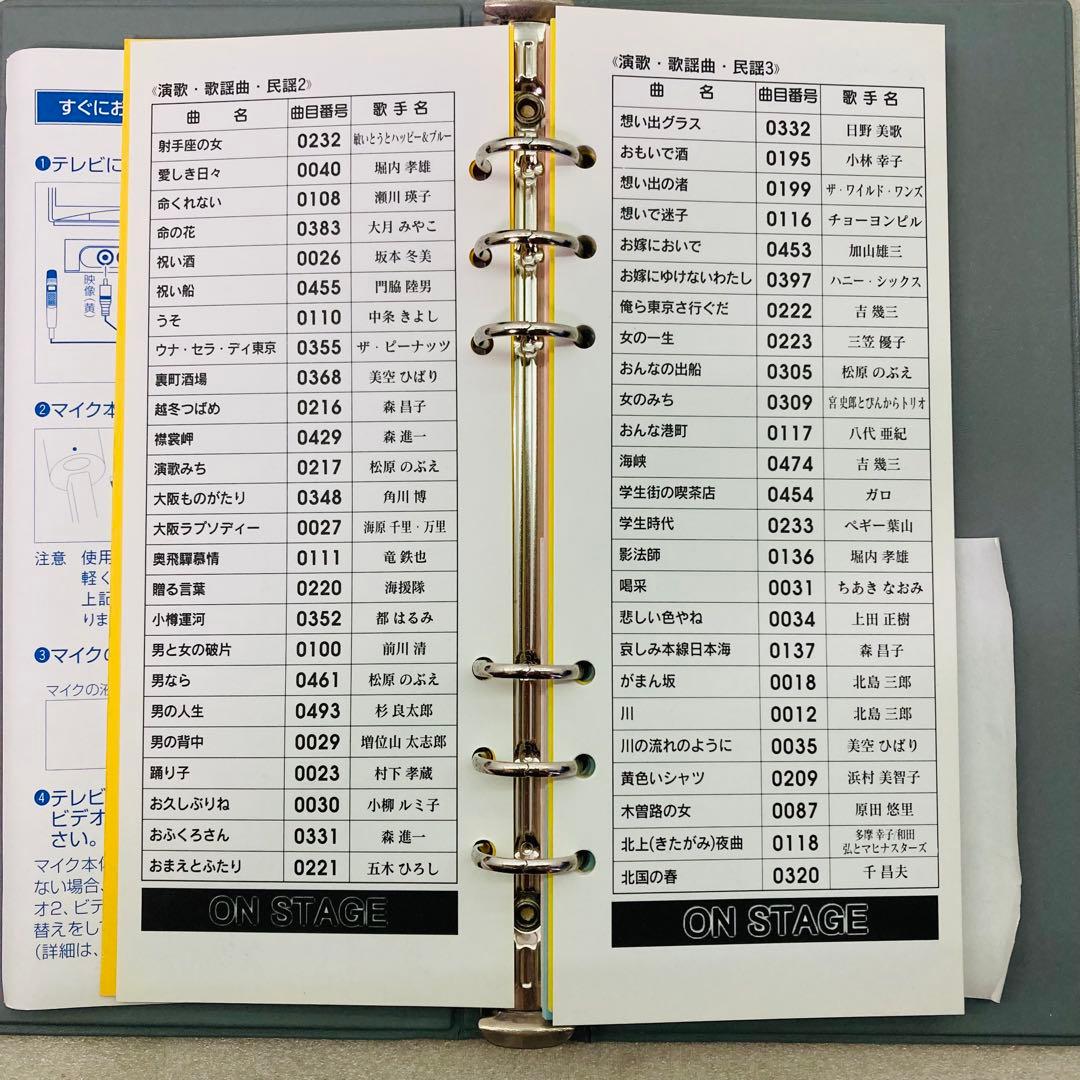 すぐにお
❶テレビに
映像(黄)
❷マイク本
注意 使用
軽く
上記
りま
❸マイクの
マイクの液
❹テレビ
ビデオ
さい。
マイク本体
ない場合、
オ2、ビデ
替えをして
(詳細は、
《演歌・歌謡曲・民謡2》
曲 名 曲目番号 歌手名
射手座の女 0232 敏いとうとハッピー&ブルー
愛しき日々 0040 堀内 孝雄
命くれない 0108 瀬川 瑛子
命の花 0383 大月 みやこ
祝い酒 0026 坂本 冬美
祝い船 0455 門脇 陸男
うそ 0110 中条 きよし
ウナ・セラ・ディ東京 0355 ザ・ピーナッツ
裏町酒場 0368 美空 ひばり
越冬つばめ 0216 森 昌子
襟裳岬 0429 森 進一
演歌みち 0217 松原 のぶえ
大阪ものがたり 0348 角川 博
大阪ラプソディー 0027 海原 千里・万里
奥飛騨慕情 0111 竜 鉄也
贈る言葉 0220 海援隊
小樽運河 0352 都 はるみ
男と女の破片 0100 前川 清
男なら 0461 松原 のぶえ
男の人生 0493 杉 良太郎
男の背中 0029 増位山 太志郎
踊り子 0023 村下 孝蔵
お久しぶりね 0030 小柳 ルミ子
おふくろさん 0331 森 進一
おまえとふたり 0221 五木 ひろし
ON STAGE
《演歌・歌謡曲・民謡3》
曲 名 曲目番号 歌手名
想い出グラス 0332 日野 美歌
おもいで酒 0195 小林 幸子
想い出の渚 0199 ザ・ワイルド・ワンズ
想いで迷子 0116 チョーヨンピル
お嫁においで 0453 加山雄三
お嫁にゆけないわたし 0397 ハニー・シックス
俺ら東京さ行ぐだ 0222 吉 幾三
女の一生 0223 三笠 優子
おんなの出船 0305 松原 のぶえ
女のみち 0309 宮 史郎とぴんからトリオ
おんな港町 0117 八代 亜紀
海峡 0474 吉 幾三
学生街の喫茶店 0454 ガロ
学生時代 0233 ペギー葉山
影法師 0136 堀内 孝雄
喝采 0031 ちあき なおみ
悲しい色やね 0034 上田 正樹
哀しみ本線日本海 0137 森 昌子
がまん坂 0018 北島 三郎
川 0012 北島 三郎
川の流れのように 0035 美空 ひばり
黄色いシャツ 0209 浜村 美智子
木曽路の女 0087 原田 悠里
北上(きたがみ)夜曲 0118 多摩 幸子 和田弘とマヒナスターズ
北国の春 0320 千 昌夫
ON STAGE